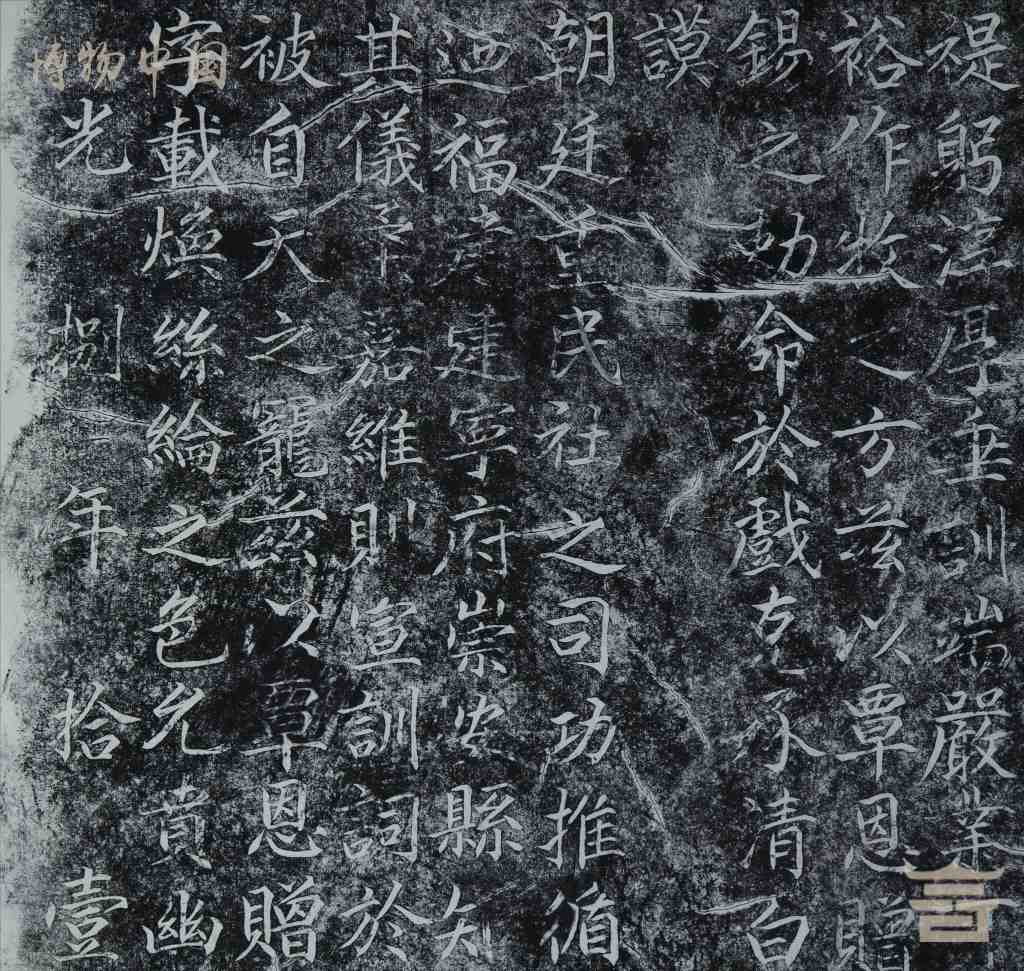 禔躬淳厚垂訓端嚴業
裕作牧之方茲以覃恩贈
錫之勅命於戲克承清白
謨
朝廷重民社之司功推循
迺福建建寧府崇安縣知
其儀平嘉維則宣訓詞於
被自天之寵茲以覃恩贈
字載煥絲綸之色允賁幽
光
捌年拾壹
博物中國